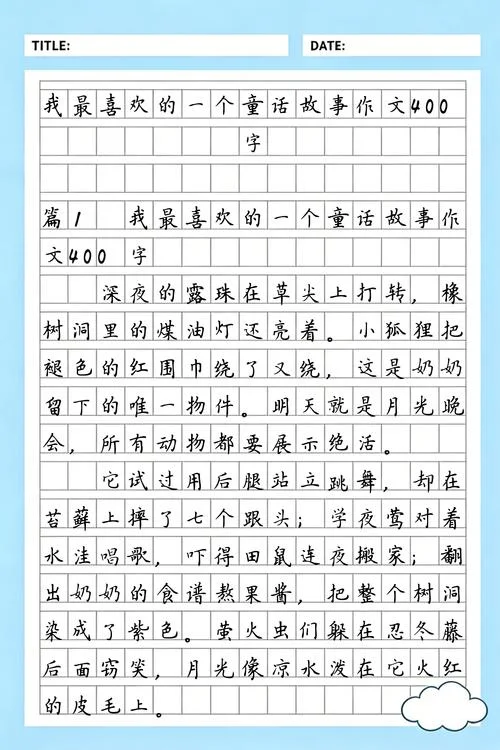 TITLE:
DATE:
我最喜欢的一个童话故事作文400
字
篇1 我最喜欢的一个童话故事作
文400 字
深夜的露珠在草尖上打转，橡
树洞里的煤油灯还亮着。小狐狸把
褪色的红围巾绕了又绕，这是奶奶
留下的唯一物件。明天就是月光晚
会，所有动物都要展示绝活。
它试过用后腿站立跳舞，却在
苔藓上摔了七个跟头；学夜莺对着
水洼唱歌，吓得田鼠连夜搬家；翻
出奶奶的食谱熬果酱，把整个树洞
染成了紫色。萤火虫们躲在忍冬藤
后面窃笑，月光像凉水泼在它火红
的皮毛上。